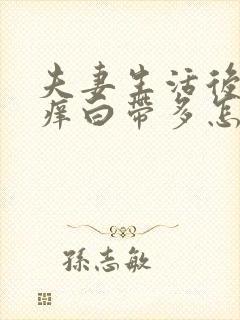 夫妻生活後
痒白帶多怎
孫志敏